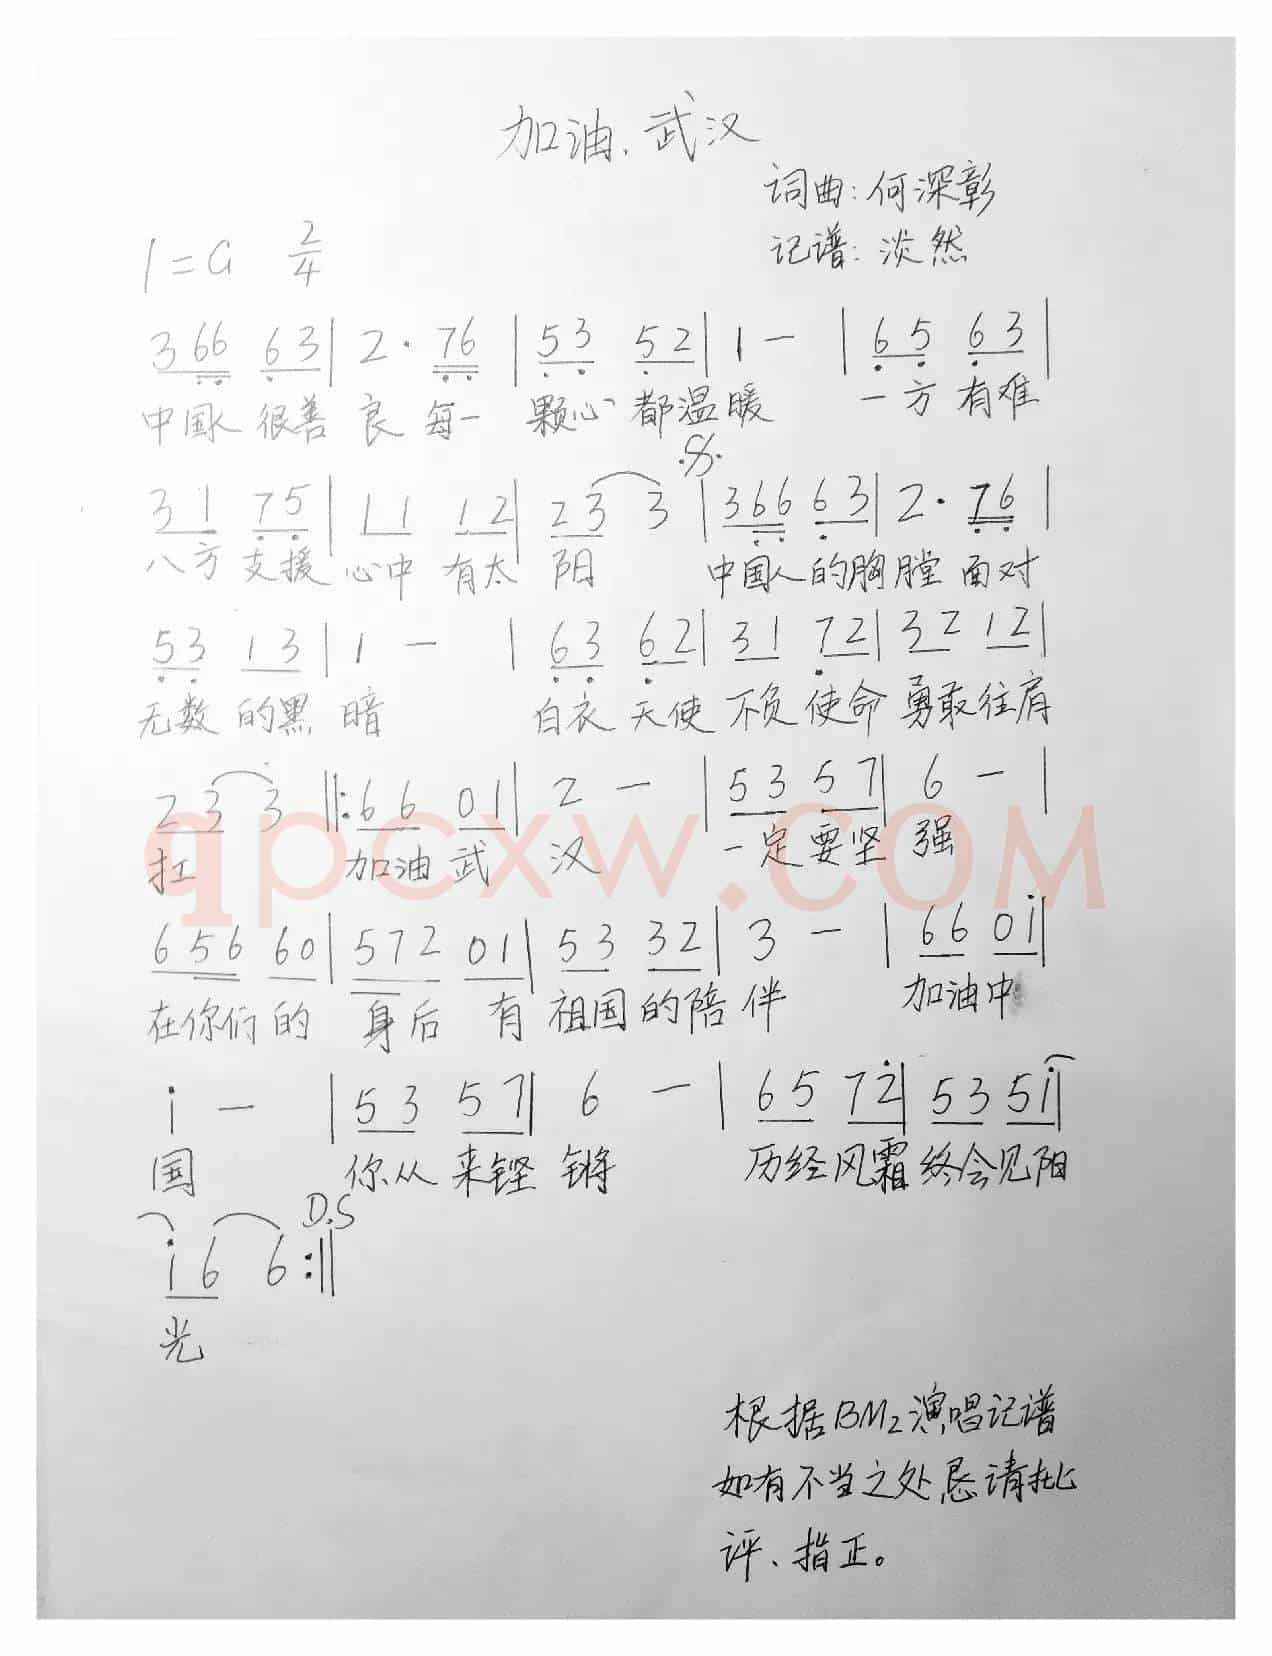 加油、武汉
词曲：何深彰
记谱：淡然
1=G 2/4
366 63 | 2· 76 | 53 52 | 1 — | 65 63 |
中国人 很善 良 每一 颗心 都温暖 一方 有难
31 75 | 11 12 | 23 3 | 366 63 | 2· 76 |
八方 支援 心中 有太 阳 中国人的胸膛 面对
53 13 | 1 — | 63 62 | 31 72 | 32 12 |
无数 的黑 暗 白衣 天使 不负 使命 勇敢往肩
23 3 ‖: 66 01 | 2 — | 53 57 | 6 — |
扛 加油 武 汉 一定 要坚 强
656 60 | 572 01 | 53 32 | 3 — | 66 01 |
在你们 的 身后 有 祖国 的陪 伴 加油中
1 — | 53 57 | 6 — | 65 72 | 53 51 |
国 你从 来铿 锵 历经风霜 终会见阳
D.S
16 6 :‖
光
根据BM2演唱记谱
如有不当之处恳请批
评、指正。
qpcxw.COM